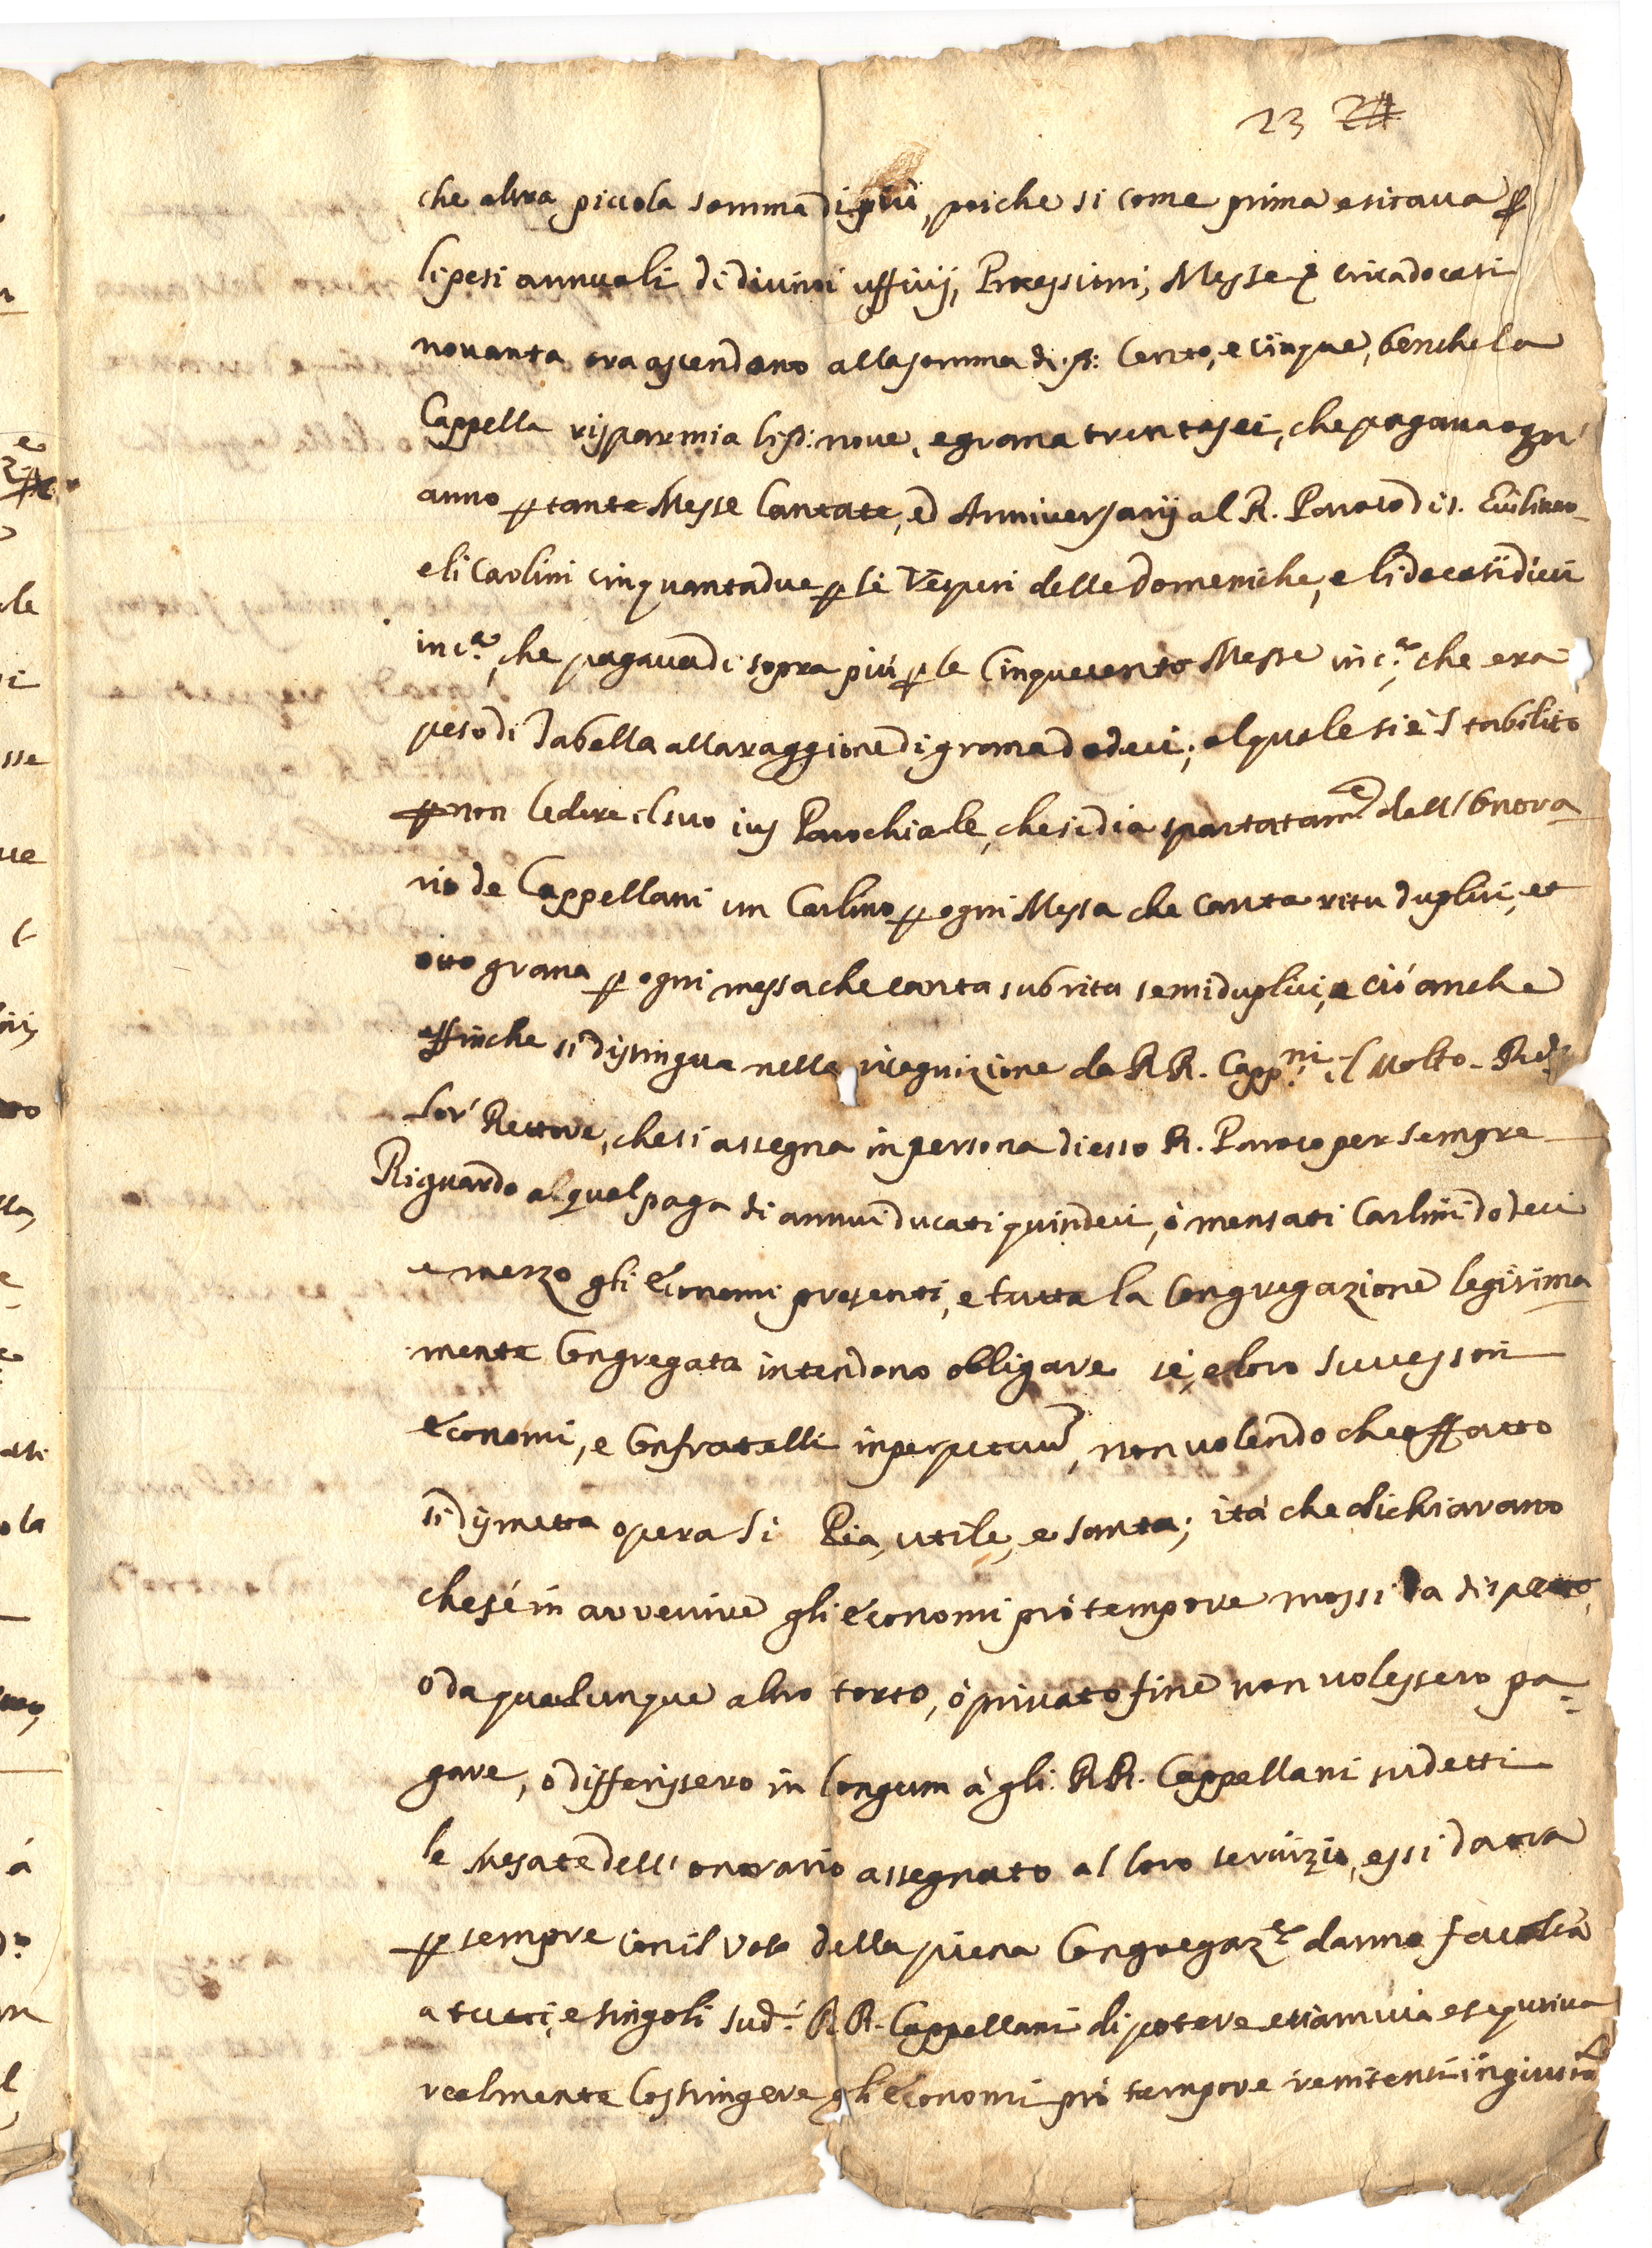 23 24
che altra piccola somma di più, poiche si come prima esitava p
li pesi annuali di divini ufficij, Processioni, Messe & circa docati
novanta ora ascendono alla somma di d: Cento, e cinque, benche la
Cappella risparmia li d: nove, e grana trentasei, che pagava ogn'
anno p tante Messe Cantate, ed Anniversarij al R. Paroco di s.
e li Carlini cinquantadue p li Vesperi delle Domeniche, e li docati dieci
in c.ª, che pagava di sopra più p le Cinquecento Messe in c.ª, che era
peso di Tabella alla raggione di grana dodeci; al quale si è stabilito
p non ledere il suo ius Parochiale, che si dia spartatam.e dall'Onora
rio de Cappellani un Carlino p ogni Messa che canta ritu duplici, et
otto grana p ogni messa che canta sub ritu semiduplici, e ciò anche
affinche si distingua nella ricognizione da RR. Capp.ni il Molto Rdo
lor' Rettore, che si assegna in persona di esso R. Paroco per sempre
Riguardo al qual paga di annui ducati quindeci, ò mensati Carlini dodeci
e mezzo gli Economi presenti, e tutta la Congregazione legitima
mente Congregata intendono obligare sè, e loro Successori
Economi, e Confratelli in perpetuum, non volendo che affatto
si dismetta opera si Pia, utile, e santa; ità che dichiarano
che sé in avvenire gli Economi prò tempore mossi da dispetto,
ò da qualunque altro torto, ò privato fine non volessero pa-
gare, ò differissero in longum à gli RR. Cappellani sudetti
le mesate dell'onorario assegnato al loro servizio, essi da ora
p sempre con il voto della piena Congregaz.e danno facoltà
a tutti, e singoli sud.i RR. Cappellani di potere etiam via esequtiva
realmente Costringere gli Economi prò tempore renitenti